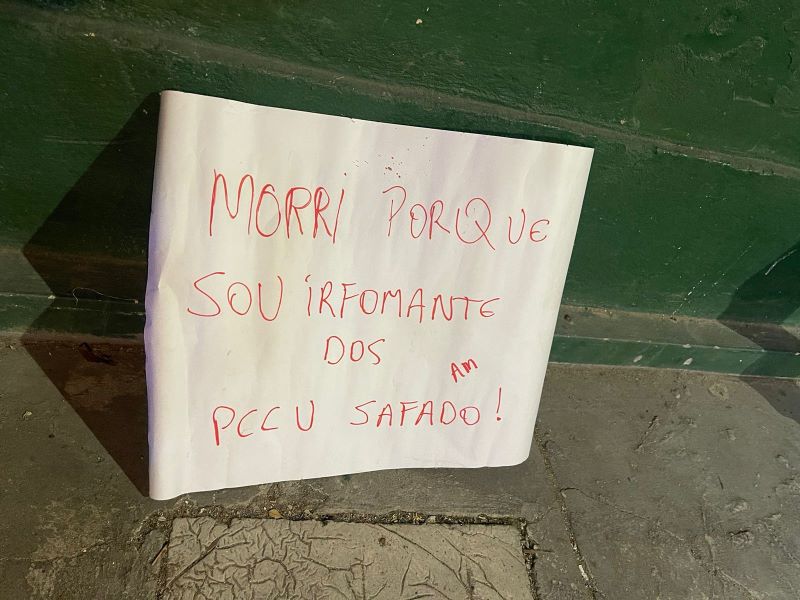 MORRI PORQUE
SOU IRFOMANTE
DOS
AM
PCCU SAFADO!